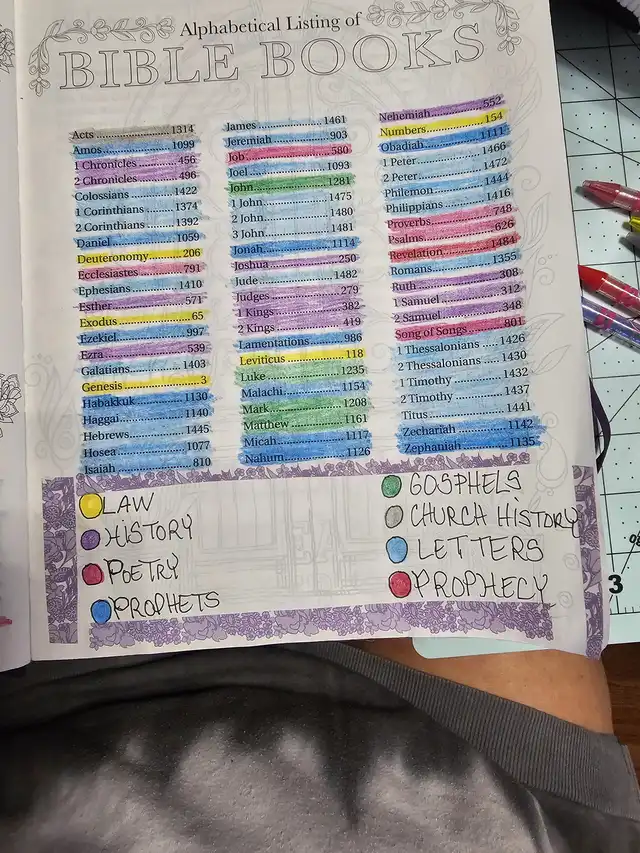 Alphabetical Listing of
BIBLE BOOKS
Acts 1314
Amos 1099
1 Chronicles 456
2 Chronicles 496
Colossians 1422
1 Corinthians 1374
2 Corinthians 1392
Daniel 1059
Deuteronomy 206
Ecclesiastes 791
Ephesians 1410
Esther 571
Exodus 65
Ezekiel 997
Ezra 539
Galatians 1403
Genesis 3
Habakkuk 1130
Haggai 1140
Hebrews 1445
Hosea 1077
Isaiah 810
James 1461
Jeremiah 903
Job 580
Joel 1093
John 1281
1 John 1475
2 John 1480
3 John 1481
Jonah 1114
Joshua 250
Jude 1482
Judges 279
1 Kings 382
2 Kings 419
Lamentations 986
Leviticus 118
Luke 1235
Malachi 1154
Mark 1208
Matthew 1161
Micah 1117
Nahum 1126
Nehemiah 552
Numbers 154
Obadiah 1111
1 Peter 1466
2 Peter 1472
Philemon 1444
Philippians 1416
Proverbs 748
Psalms 626
Revelation 1484
Romans 1355
Ruth 308
1 Samuel 312
2 Samuel 348
Song of Songs 801
1 Thessalonians 1426
2 Thessalonians 1430
1 Timothy 1432
2 Timothy 1437
Titus 1441
Zechariah 1142
Zephaniah 1135
LAW
HISTORY
POETRY
PROPHETS
GOSPHELS
CHURCH HISTORY
LETTERS
PROPHECY
3